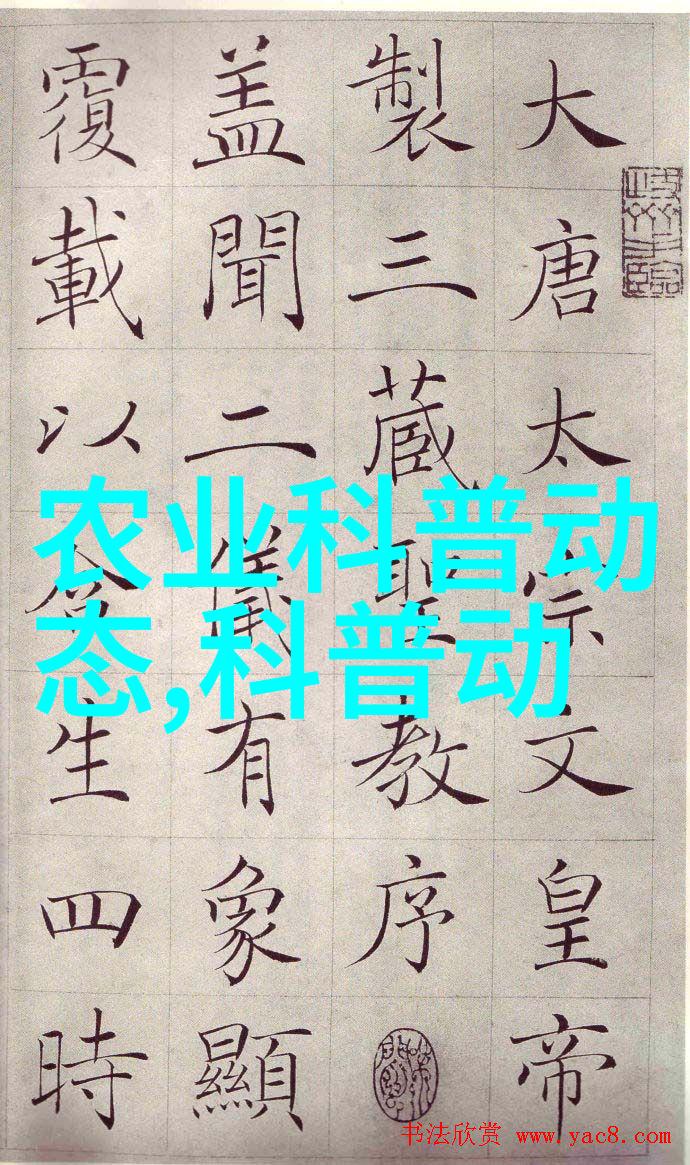 大唐太宗文皇帝
製三蔵聖教序
盖聞二儀有象顯
覆載以含生四時
农业科普动
态,科普动
书法欣赏 www.yac8.com